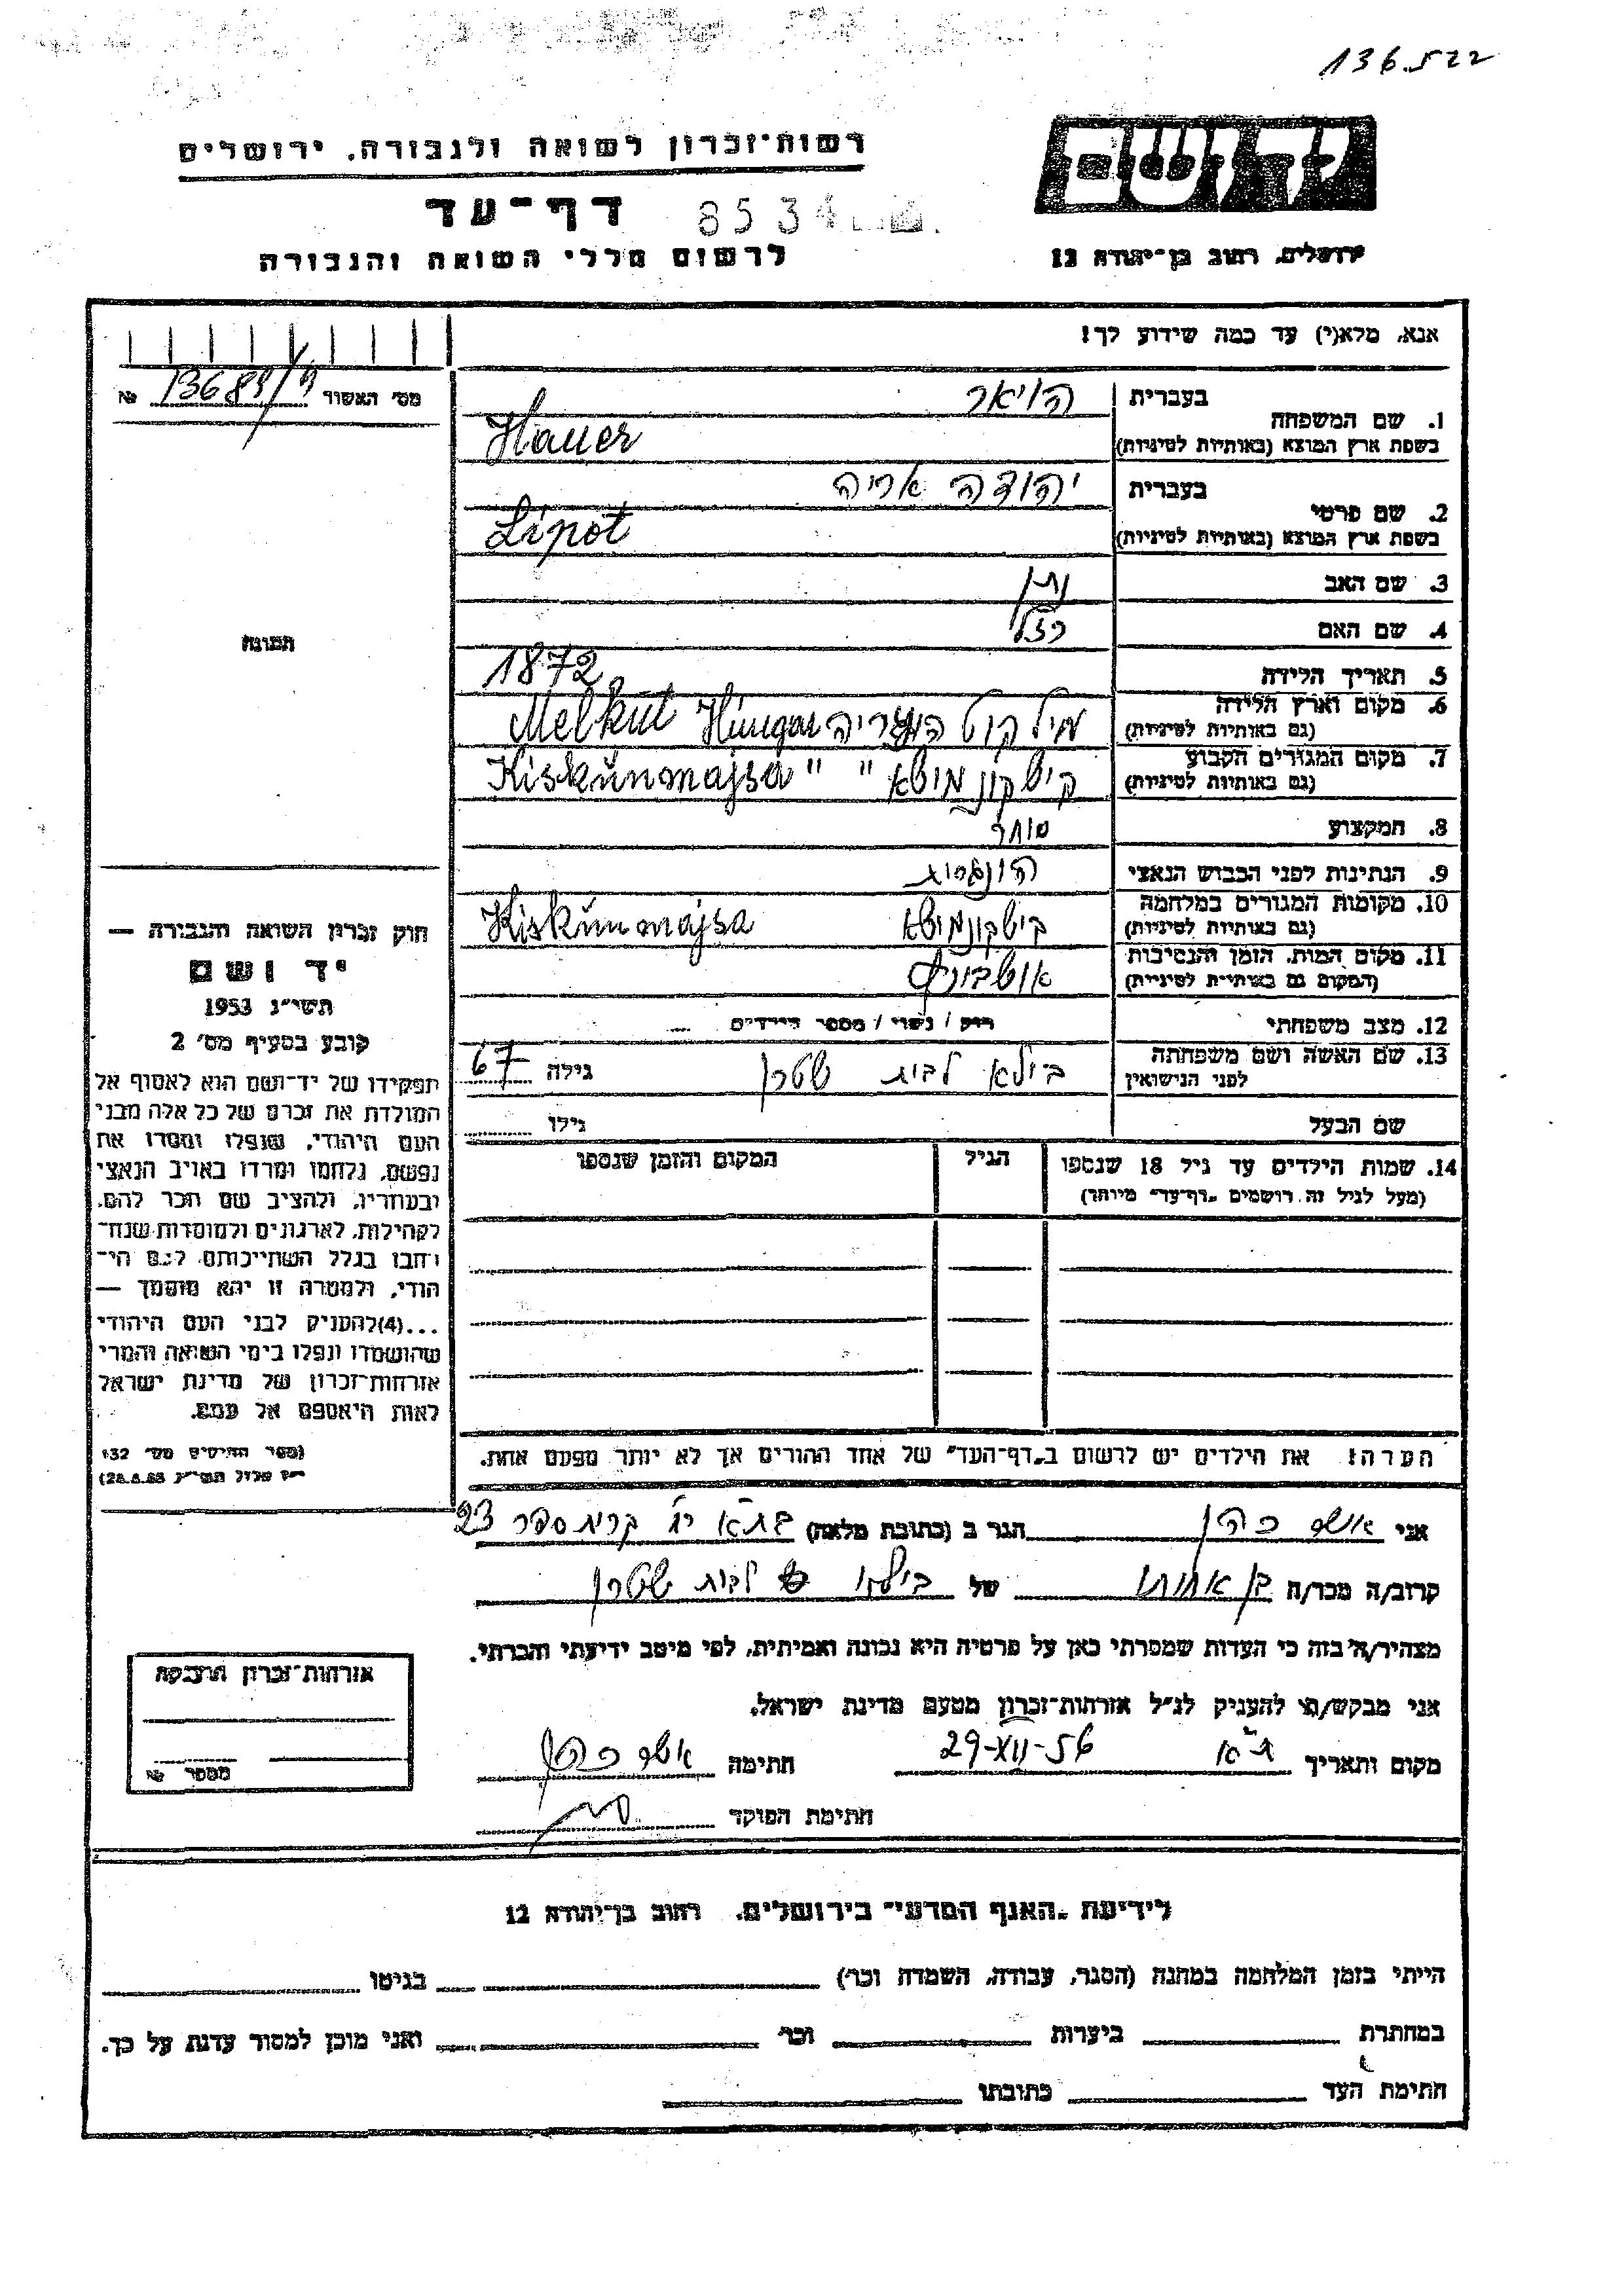 136.522
רשות־זכרון לשואה ולגבורה, ירושלים
יד ושם
דף־עד 8534
לרשום חללי השואה והגבורה
ירושלים, רחוב בן־יהודה 12
אנא, מלא(י) עד כמה שידוע לך!
מס' האשור № 13689/
1. שם המשפחה
בעברית הויאר
בשפת ארץ המוצא (באותיות לטיניות) Hauer
2. שם פרטי
בעברית יהודה אריה
בשפת ארץ המוצא (באותיות לטיניות) Lipót
3. שם האב נתן
4. שם האם רזל
5. תאריך הלידה 1872
6. מקום וארץ הלידה
(גם באותיות לטיניות) מילקוט הונגריה Melkut Hungar
7. מקום המגורים הקבוע
(גם באותיות לטיניות) קישקון מישא " " Kiskunmajsa
8. המקצוע סוחר
9. הנתינות לפני הכבוש הנאצי הונגרית
10. מקומות המגורים במלחמה
(גם באותיות לטיניות) קישקונמישא Kiskunmajsa
11. מקום המות, הזמן והנסיבות
(המקום גם באותיות לטיניות) אושביץ
12. מצב משפחתי רווק / נשוי / מספר הילדים
13. שם האשה ושם משפחתה
לפני הנישואין בילא לבית שטרן גילה 67
שם הבעל גילו
14. שמות הילדים עד גיל 18 שנספו הגיל המקום והזמן שנספו
(מעל לגיל זה רושמים „דף־עד" מיוחד)
הערה: את הילדים יש לרשום ב„דף־העד" של אחד ההורים אך לא יותר מפעם אחת.
תמונה
חוק זכרון השואה והגבורה —
יד ושם
תשי"ג 1953
קובע בסעיף מס' 2
תפקידו של יד־ושם הוא לאסוף אל
המולדת את זכרם של כל אלה מבני
העם היהודי, שנפלו ומסרו את
נפשם, נלחמו ומרדו באויב הנאצי
ובעוזריו, ולהציב שם וזכר להם,
לקהילות, לארגונים ולמוסדות שנח־
רבו בגלל השתייכותם לעם הי־
הודי, ולמטרה זו יהא מוסמך —
...(4)להעניק לבני העם היהודי
שהושמדו ונפלו בימי השואה והמרי
אזרחות־זכרון של מדינת ישראל
לאות היאספם אל עמם.
(ספר החוקים מס' 132
אני אשר כהן הגר ב (כתובת מלאה) בת"א קרית ספר 23
קרוב/ה מכר/ה בן אחותו של בילא לבית שטרן
מצהיר/ה בזה כי העדות שמסרתי כאן על פרטיה היא נכונה ואמיתית, לפי מיטב ידיעתי והכרתי.
אני מבקש/ת להעניק לנ"ל אזרחות־זכרון מטעם מדינת ישראל.
מקום ותאריך ת"א 29-XII-56 חתימה אשר כהן
חתימת הפוקד
אזרחות־זכרון הוענקה
מספר №
לידיעת „האגף המדעי" בירושלים, רחוב בן־יהודה 12
הייתי בזמן המלחמה במחנה (הסגר, עבודה, השמדה וכו') בגיטו
במחתרת ביערות וכו' ואני מוכן למסור עדות על כך.
חתימת העד כתובתו